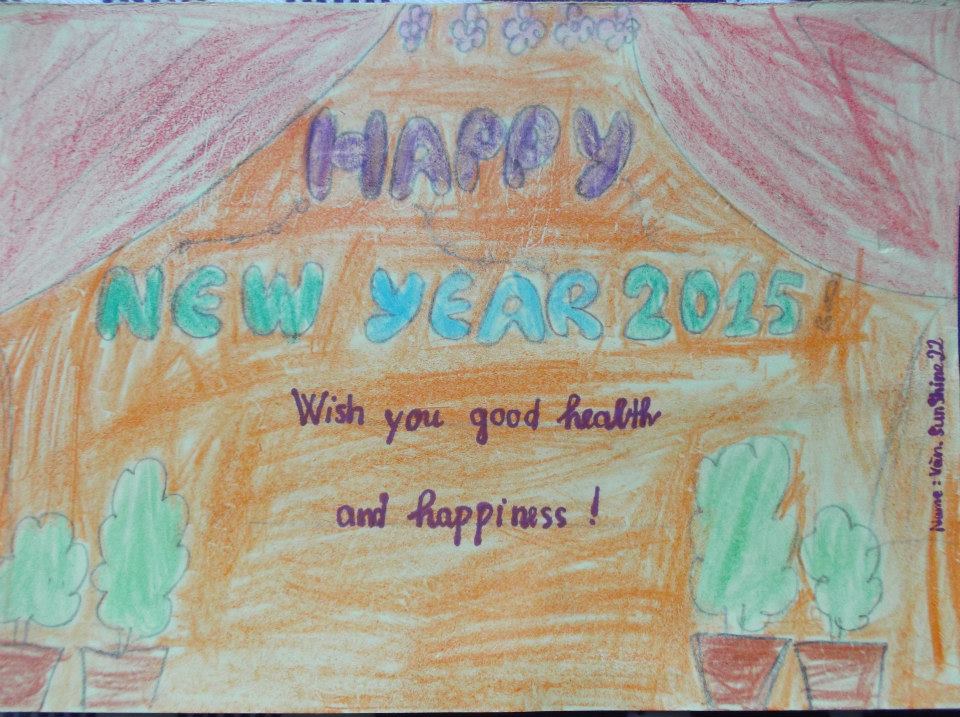 HAPPY
NEW YEAR 2015!
Wish you good health
and happiness !
Name : Vân. SunShine 22